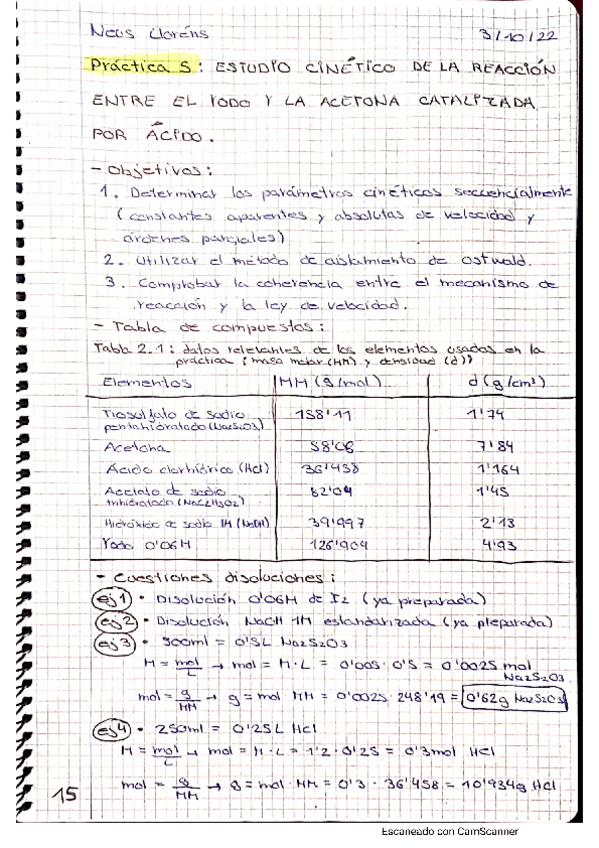 Neus Lloréns 3/10/22
Práctica 5: ESTUDIO CINÉTICO DE LA REACCIÓN
ENTRE EL IODO Y LA ACETONA CATALIZADA
POR ÁCIDO.
- Objetivos:
1. Determinar los parámetros cinéticos secuencialmente
(constantes aparentes y absolutas de velocidad y
órdenes parciales)
2. Utilizar el método de aislamiento de Ostwald.
3. Comprobar la coherencia entre el mecanismo de
reacción y la ley de velocidad.
- Tabla de compuestos:
Tabla 2.1: datos relevantes de los elementos usados en la
práctica (masa molar (MM) y densidad (d))
Elementos MM (g/mol) d (g/cm³)
Tiosulfato de sodio 158'11 1'74
pentahidratado (Na2S2O3)
Acetona 58'08 7'84
Ácido clorhídrico (HCl) 36'458 1'164
Acetato de sodio 82'04 1'45
trihidratado (NaC2H3O2)
Hidróxido de sodio 1M (NaOH) 39'997 2'13
Yodo 0'06M 126'904 4'93
- Cuestiones disoluciones:
ej1 • Disolución 0'06M de I2 (ya preparada)
ej2 • Disolución NaOH 1M estandarizada (ya preparada)
ej3 • 500ml = 0'5L Na2S2O3
M = mol/L → mol = M · L = 0'005 · 0'5 = 0'0025 mol
Na2S2O3
mol = g/MM → g = mol · MM = 0'0025 · 248'19 = 0'62g Na2S2O3
ej4 • 250ml = 0'25L HCl
M = mol/L → mol = M · L = 1'2 · 0'25 = 0'3mol HCl
mol = g/MM → g = mol · MM = 0'3 · 36'458 = 10'934g HCl
15
Escaneado con CamScanner